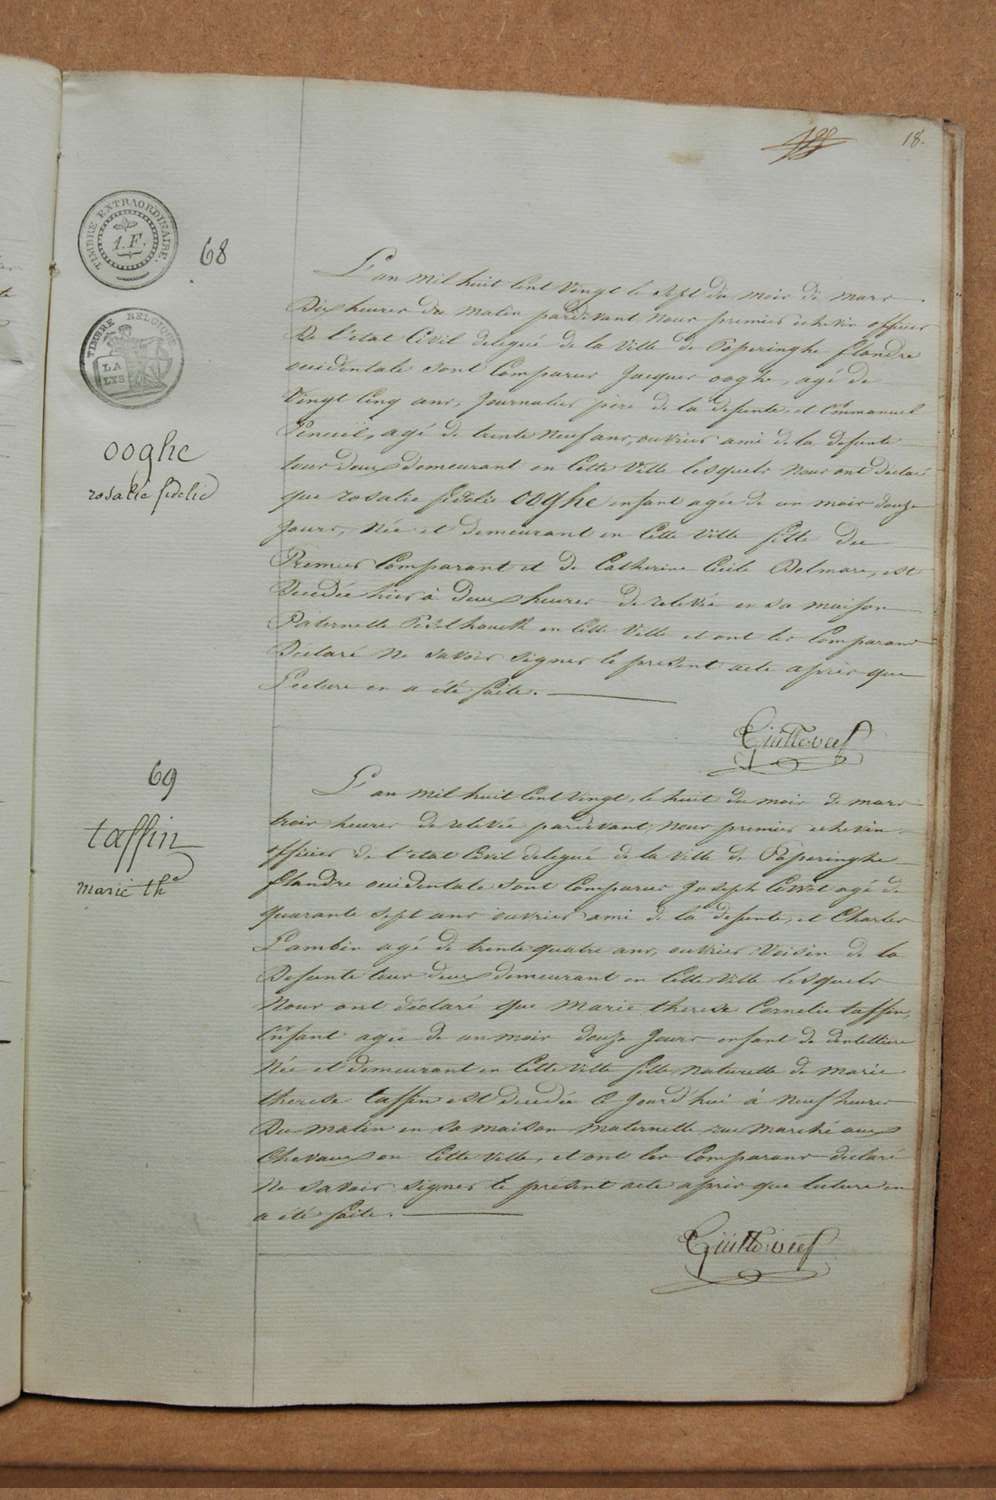 18.
TIMBRE EXTRAORDINAIRE.
1.F.
TIMBRE BELGIQUE
LA LYS
68
ooghe
rosalie fidelie
L'an mil huit Cent Vingt le sept du mois de mars
Dix heures du matin pardevant Nous premier echevin officier
De l'etat Civil delegué de la Ville de Poperinghe flandre
occidentale sont Comparus Jacques ooghe, agé de
Vingt Cinq ans, Journalier père de la defunte, et Emmanuel
agé de trente Neuf ans, ouvrier ami de la defunte
tous deux demeurant en Cette Ville lesquels Nous ont declaré
que rosalie fidelie ooghe enfant agée de un mois douze
Jours, Née et demeurant en Cette Ville fille du
Premier Comparant et de Catherine Cecile Delmare, est
Decedée hier à Deux heures de relevée en sa maison
Paternelle en Cette Ville et ont les Comparans
Declaré Ne savoir signer le present acte après que
Lecture en a été faite.
69
taffin
marie th^e
L'an mil huit Cent Vingt, le huit du mois de mars
trois heures de relevée pardevant, Nous premier echevin
officier de l'etat Civil delegué de la Ville de Poperinghe
flandre occidentale sont Comparus Joseph agé de
quarante sept ans ouvrier ami de la defunte, et Charles
Lambin agé de trente quatre ans, ouvrier Voisin de la
Defunte tous deux demeurant en Cette Ville lesquels
Nous ont déclaré que Marie therese Cornelie taffin,
Enfant agée de un mois douze Jours enfant de dentelliere
Née et demeurant en Cette Ville fille naturelle de marie
therese taffin est decedée ce Jourd'hui à Neuf heures
Du matin en sa maison maternelle rue marché aux
Chevaux en Cette Ville, et ont les Comparans déclaré
Ne savoir signer le present acte après que lecture en
a été faite.